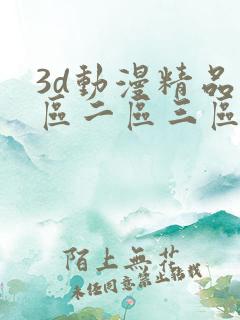 3d動漫精品
區二區三區
陌上無花
未經同意禁止轉載